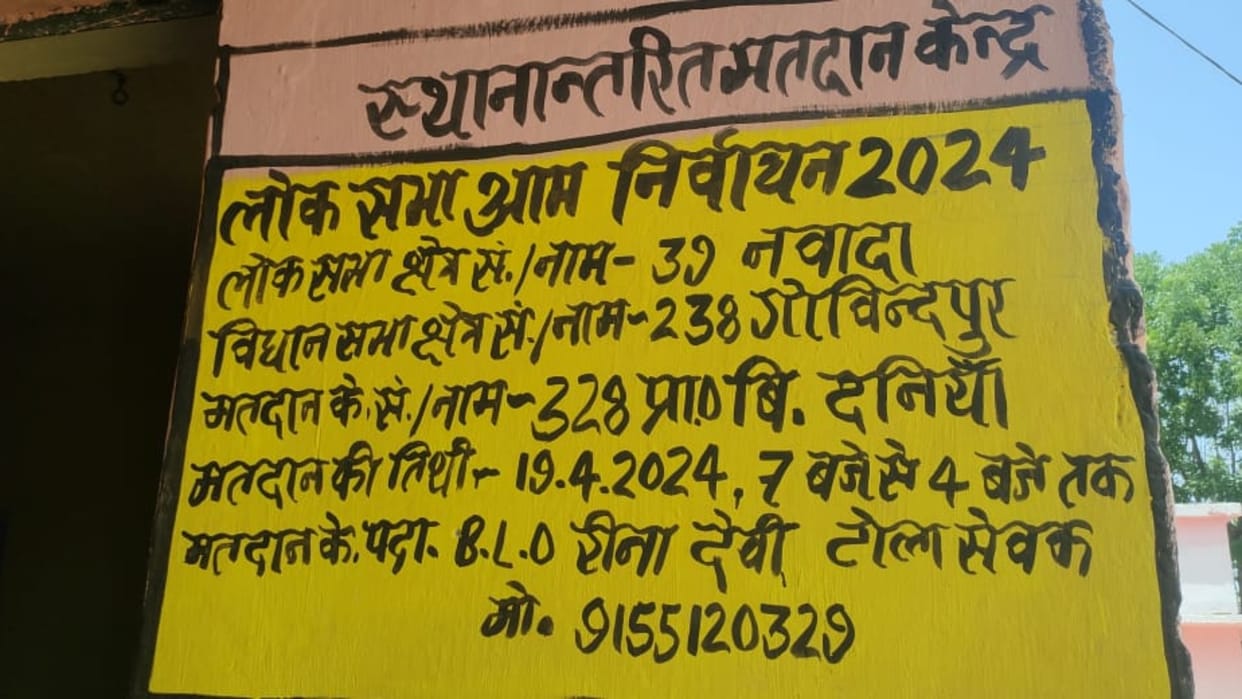 स्थानान्तरित मतदान केन्द्र
लोक सभा आम निर्वाचन 2024
लोक सभा क्षेत्र सं./नाम- 39 नवादा
विधान सभा क्षेत्र सं./नाम-238 गोविन्दपुर
मतदान के.सं./नाम-328 प्रा० बि. दनियाँ
मतदान की तिथी- 19.4.2024, 7 बजे से 4 बजे तक
मतदान के. पदा. B.L.O रीना देवी टोला सेवक
मो. 9155120329